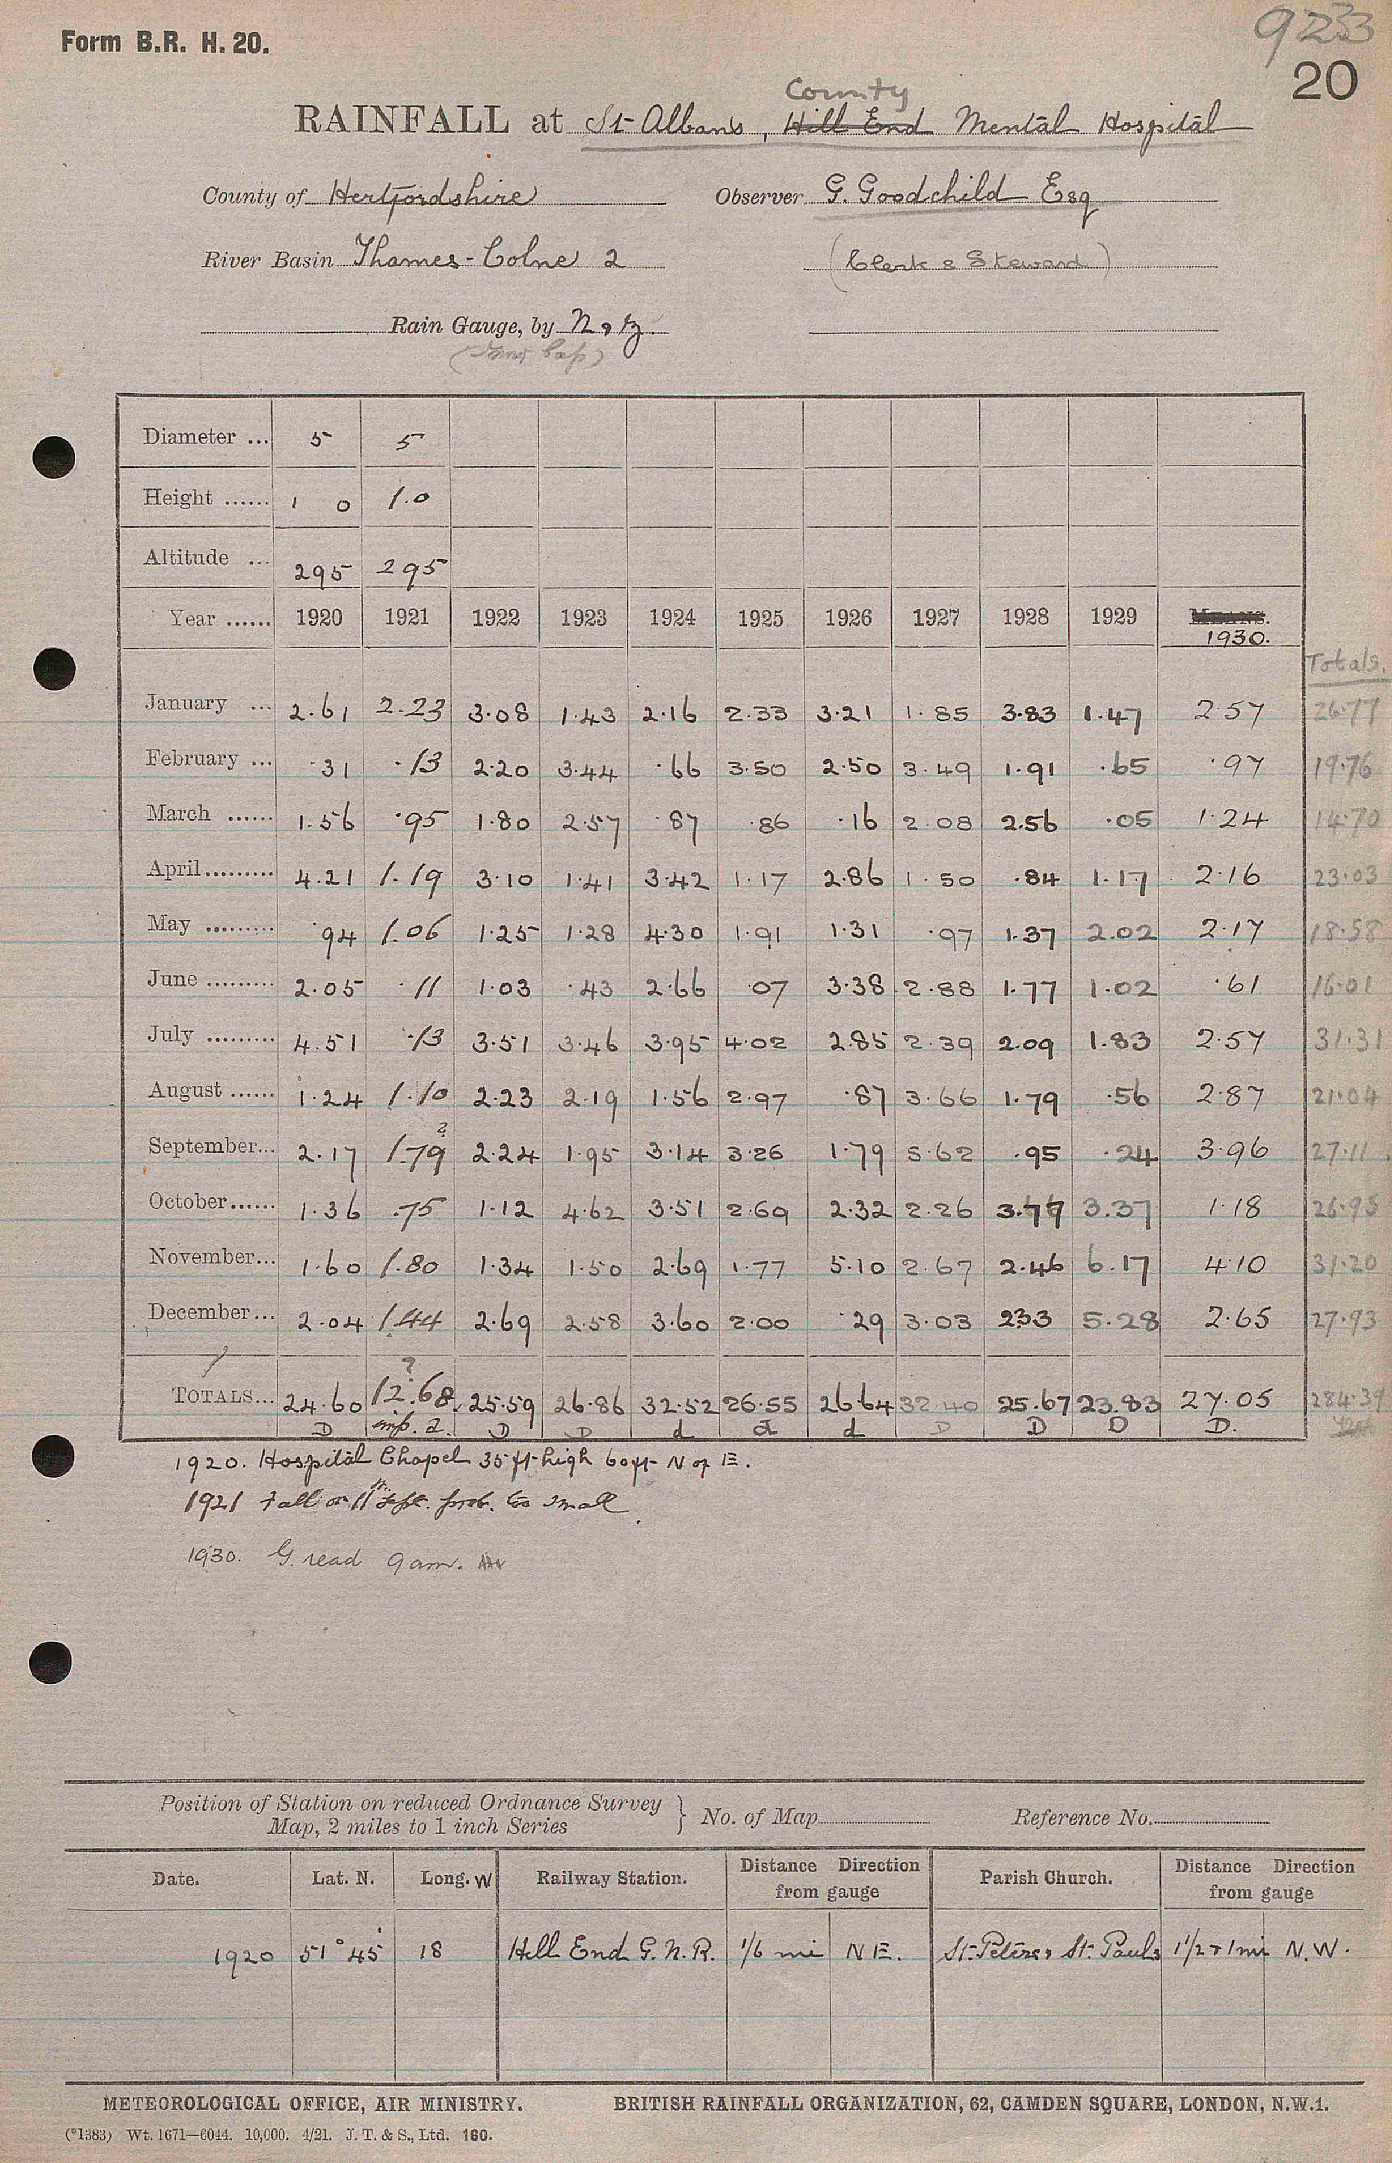 9233
Form B.R. H. 20.
20
County
RAINFALL at St Albans, Hill End Mental Hospital
County of Hertfordshire Observer G. Goodchild Esq
River Basin Thames-Colne 2 (Clerk & Steward)
Rain Gauge, by N & Z.
Diameter ... 5 5
Height ...... 1 0 1.0
Altitude ... 295 295
Year ...... 1920 1921 1922 1923 1924 1925 1926 1927 1928 1929 MEANS.
1930.
Totals.
January ... 2.61 2.23 3.08 1.43 2.16 2.33 3.21 1.85 3.83 1.47 2.57 26.77
February ... .31 .13 2.20 3.44 .66 3.50 2.50 3.49 1.91 .65 .97 19.76
March ...... 1.56 .95 1.80 2.57 .87 .86 .16 2.08 2.56 .05 1.24 14.70
April ......... 4.21 1.19 3.10 1.41 3.42 1.17 2.86 1.50 .84 1.17 2.16 23.03
May ......... .94 1.06 1.25 1.28 4.30 1.91 1.31 .97 1.37 2.02 2.17 18.58
June ......... 2.05 .11 1.03 .43 2.66 .07 3.38 2.88 1.77 1.02 .61 16.01
July ......... 4.51 .13 3.51 3.46 3.95 4.02 2.85 2.39 2.09 1.83 2.57 31.31
August ...... 1.24 1.10 2.23 2.19 1.56 2.97 .87 3.66 1.79 .56 2.87 21.04
September... 2.17 1.79 ? 2.24 1.95 3.14 3.26 1.79 5.62 .95 .24 3.96 27.11
October...... 1.36 .75 1.12 4.62 3.51 2.69 2.32 2.26 3.77 3.37 1.18 26.95
November... 1.60 1.80 1.34 1.50 2.69 1.77 5.10 2.67 2.46 6.17 4.10 31.20
December... 2.04 1.44 2.69 2.58 3.60 2.00 .29 3.03 2.33 5.28 2.65 27.93
?
TOTALS... 24.60 12.68 25.59 26.86 32.52 26.55 26.64 32.40 25.67 23.83 27.05 284.39
D D D d d d D D D D.
1920. Hospital Chapel 35 ft high 60 ft N of E.
1921 Fall on 11th Sept. prob. too small.
1930. G. read 9 am.
Position of Station on reduced Ordnance Survey
Map, 2 miles to 1 inch Series } No. of Map Reference No.
Date. Lat. N. Long. W Railway Station. Distance Direction from gauge Parish Church. Distance Direction from gauge
1920 51° 45' 18 Hill End G.N.R. 1/6 mi NE. St. Peters & St. Pauls 1 1/2 & 1 mi N.W.
METEOROLOGICAL OFFICE, AIR MINISTRY. BRITISH RAINFALL ORGANIZATION, 62, CAMDEN SQUARE, LONDON, N.W.1.
(*1383) Wt. 1671—6044. 10,000. 4/21. J. T. & S., Ltd. 160.